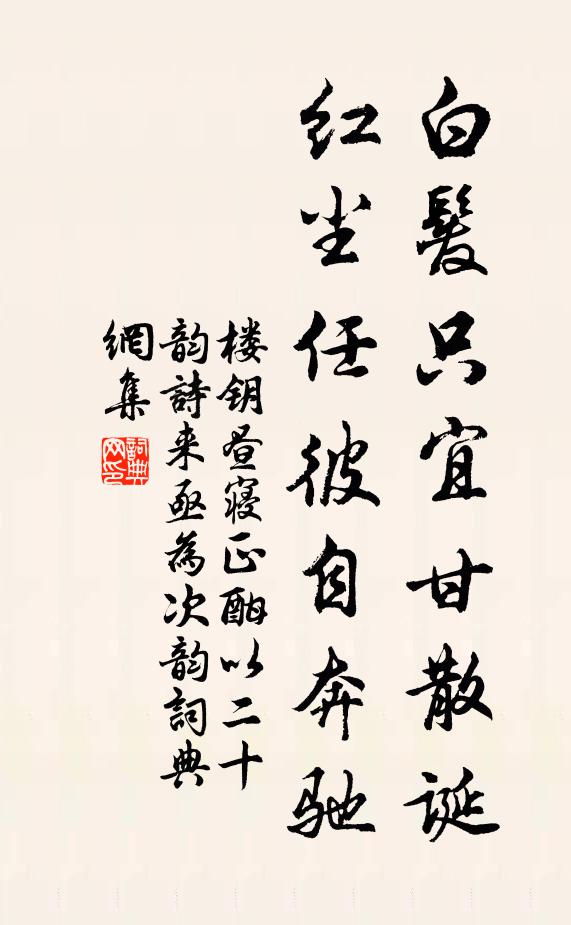 白髮只宜甘散诞
红尘任彼自奔驰
楼钥昼寢正酣以二十
韵詩来亟為次韵詞典
網集
詞典
网印